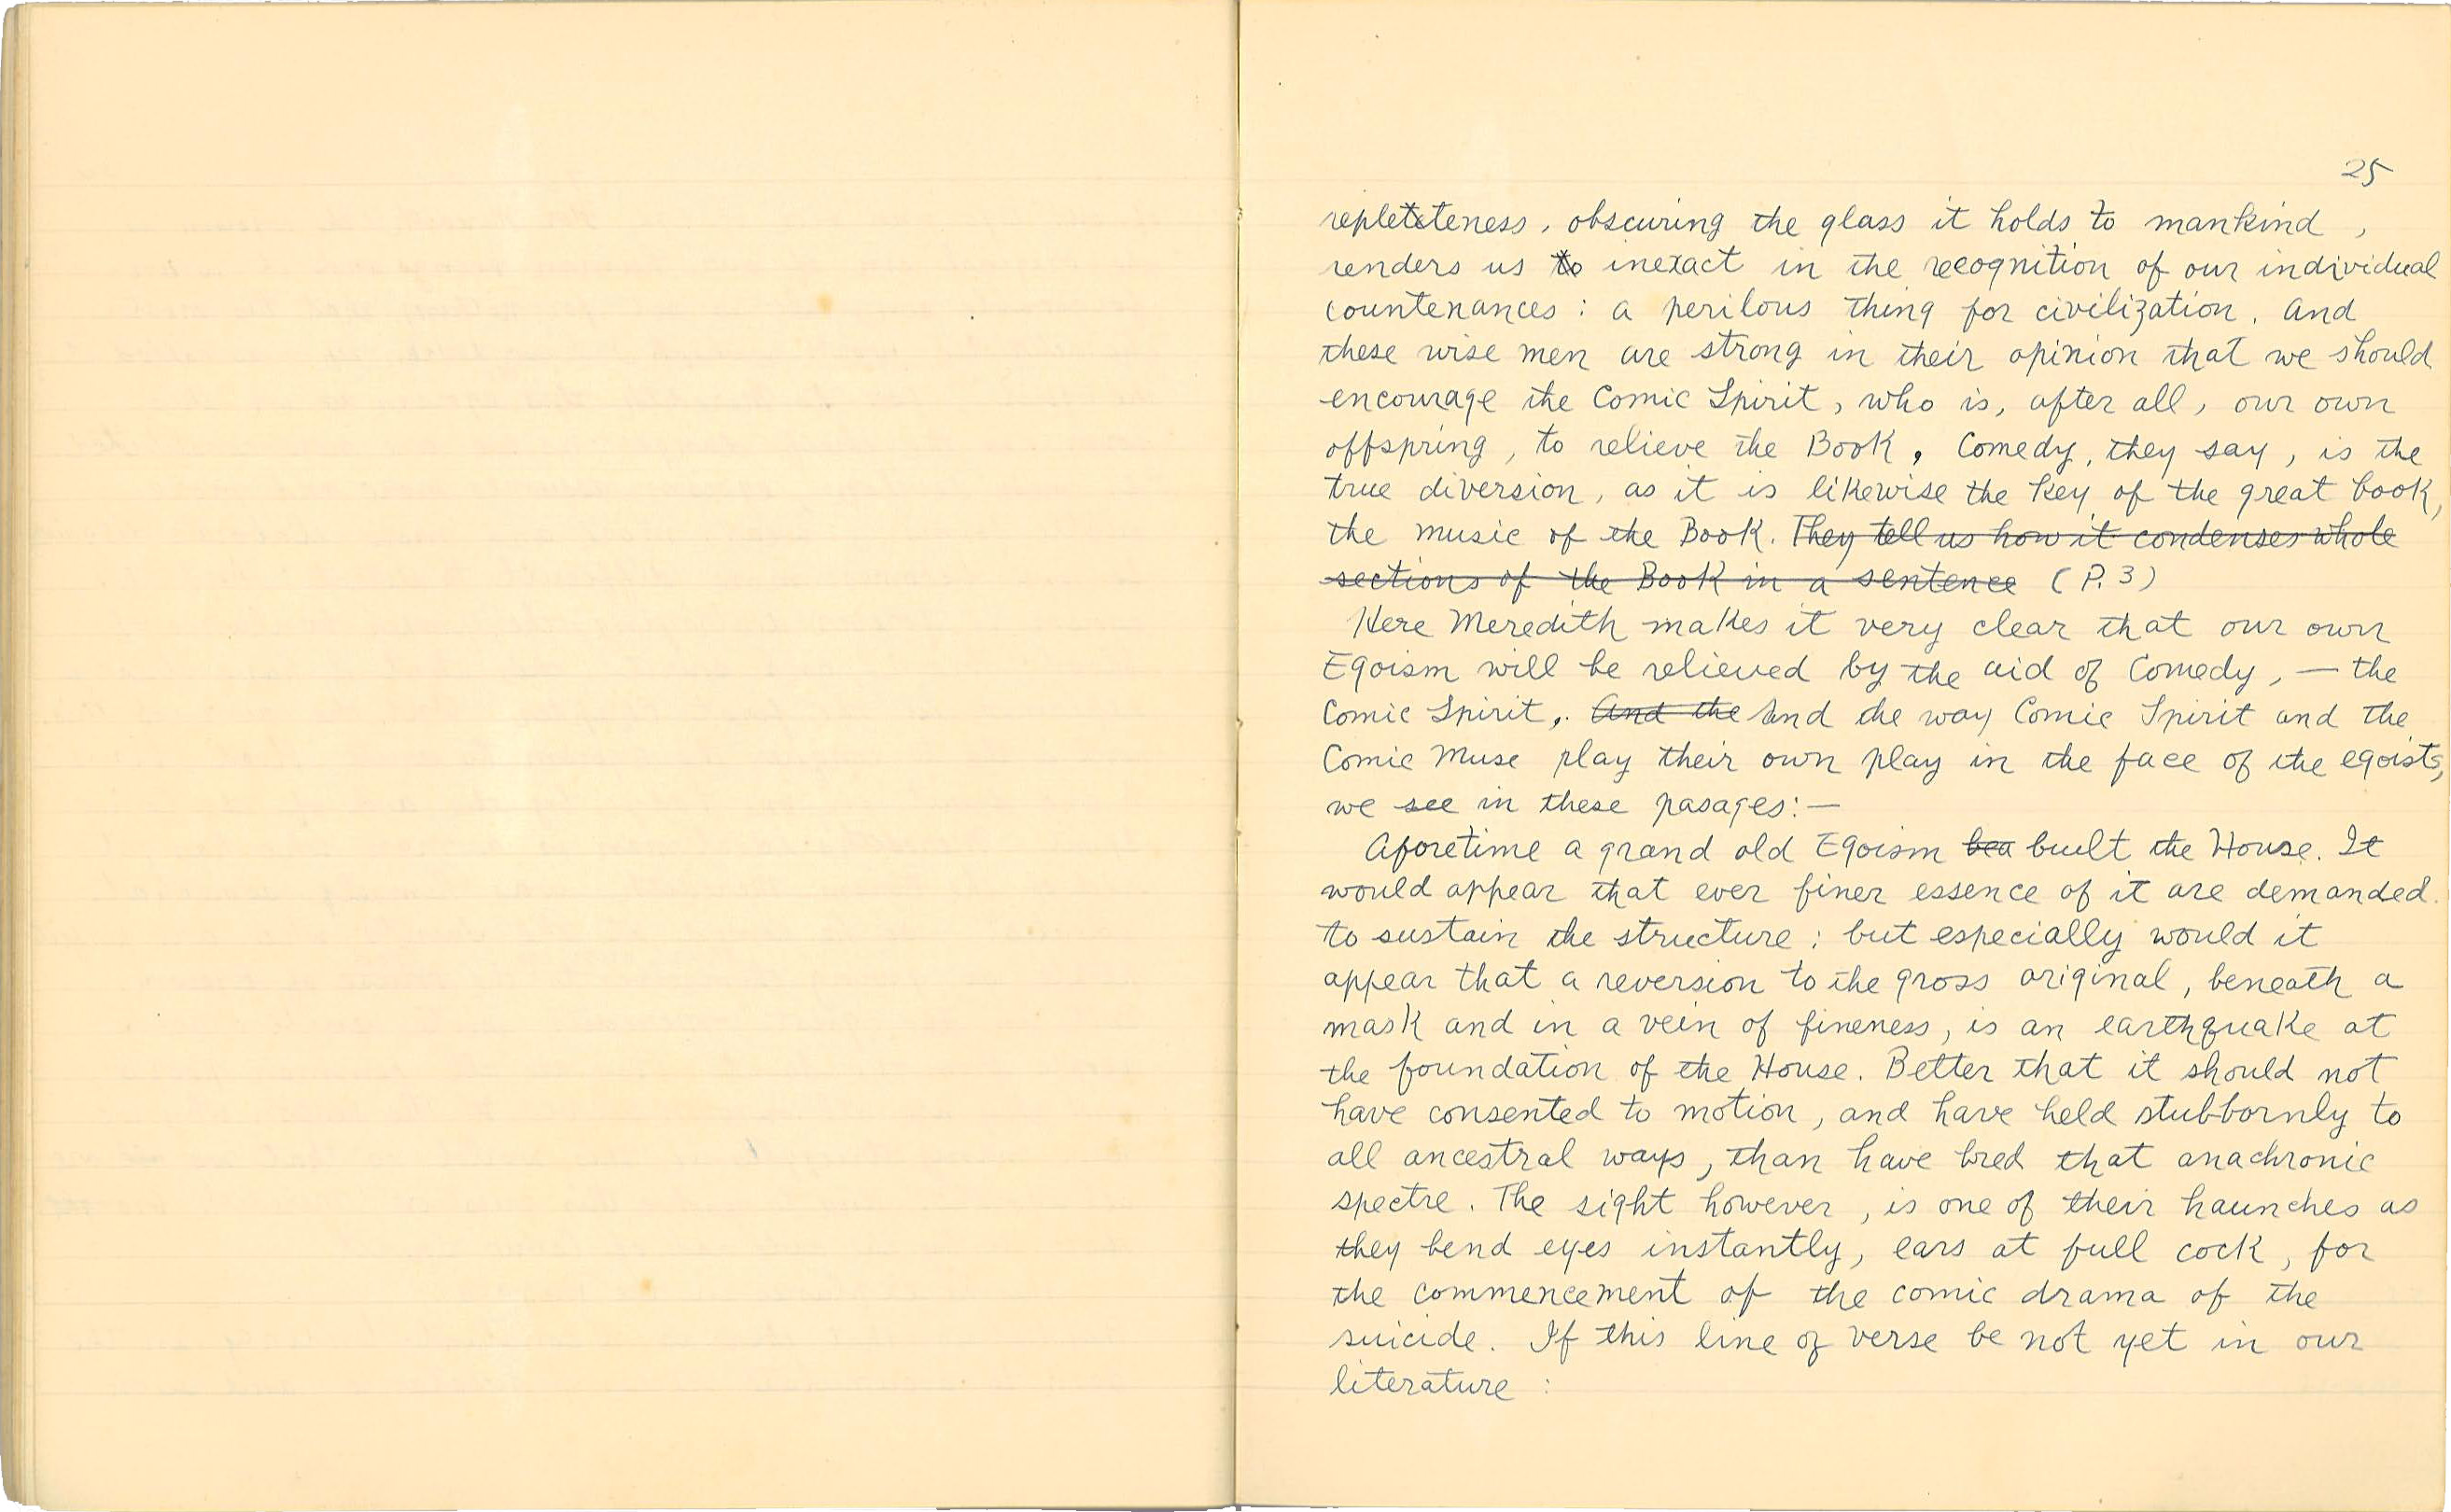 25
repleteteness, obscuring the glass it holds to mankind,
renders us to inexact in the recognition of our individual
countenances : a perilous thing for civilization. And
these wise men are strong in their opinion that we should
encourage the Comic Spirit, who is, after all, our own
offspring, to relieve the Book, Comedy, they say, is the
true diversion, as it is likewise the key of the great book,
the music of the Book. They tell us how it condenses whole
sections of the Book in a sentence (P. 3)
Here Meredith makes it very clear that our own
Egoism will be relieved by the aid of Comedy, — the
Comic Spirit,. And the And the way Comic Spirit and the
Comic Muse play their own play in the face of the egoists,
we see in these pasages:—
Aforetime a grand old Egoism bea built the House. It
would appear that ever finer essence of it are demanded.
to sustain the structure ; but especially would it
appear that a reversion to the gross original, beneath a
mask and in a vein of fineness, is an earthquake at
the foundation of the House. Better that it should not
have consented to motion, and have held stubbornly to
all ancestral ways, than have bred that anachronic
spectre. The sight however, is one of their haunches as
they bend eyes instantly, ears at full cock, for
the commencement of the comic drama of the
suicide. If this line of verse be not yet in our
literature :